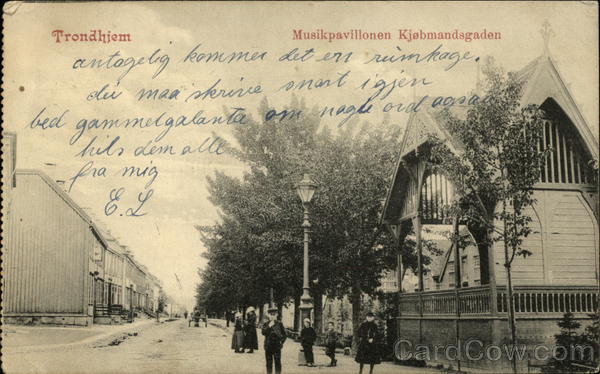 Trondhjem
Musikpavillonen Kjøbmandsgaden
antagelig kommer det en rúmkage.
du maa skrive snart igjen
bed gammelgalanta om nogle ord ogsaa
hils dem alle
fra mig
E. L
CardCow.com